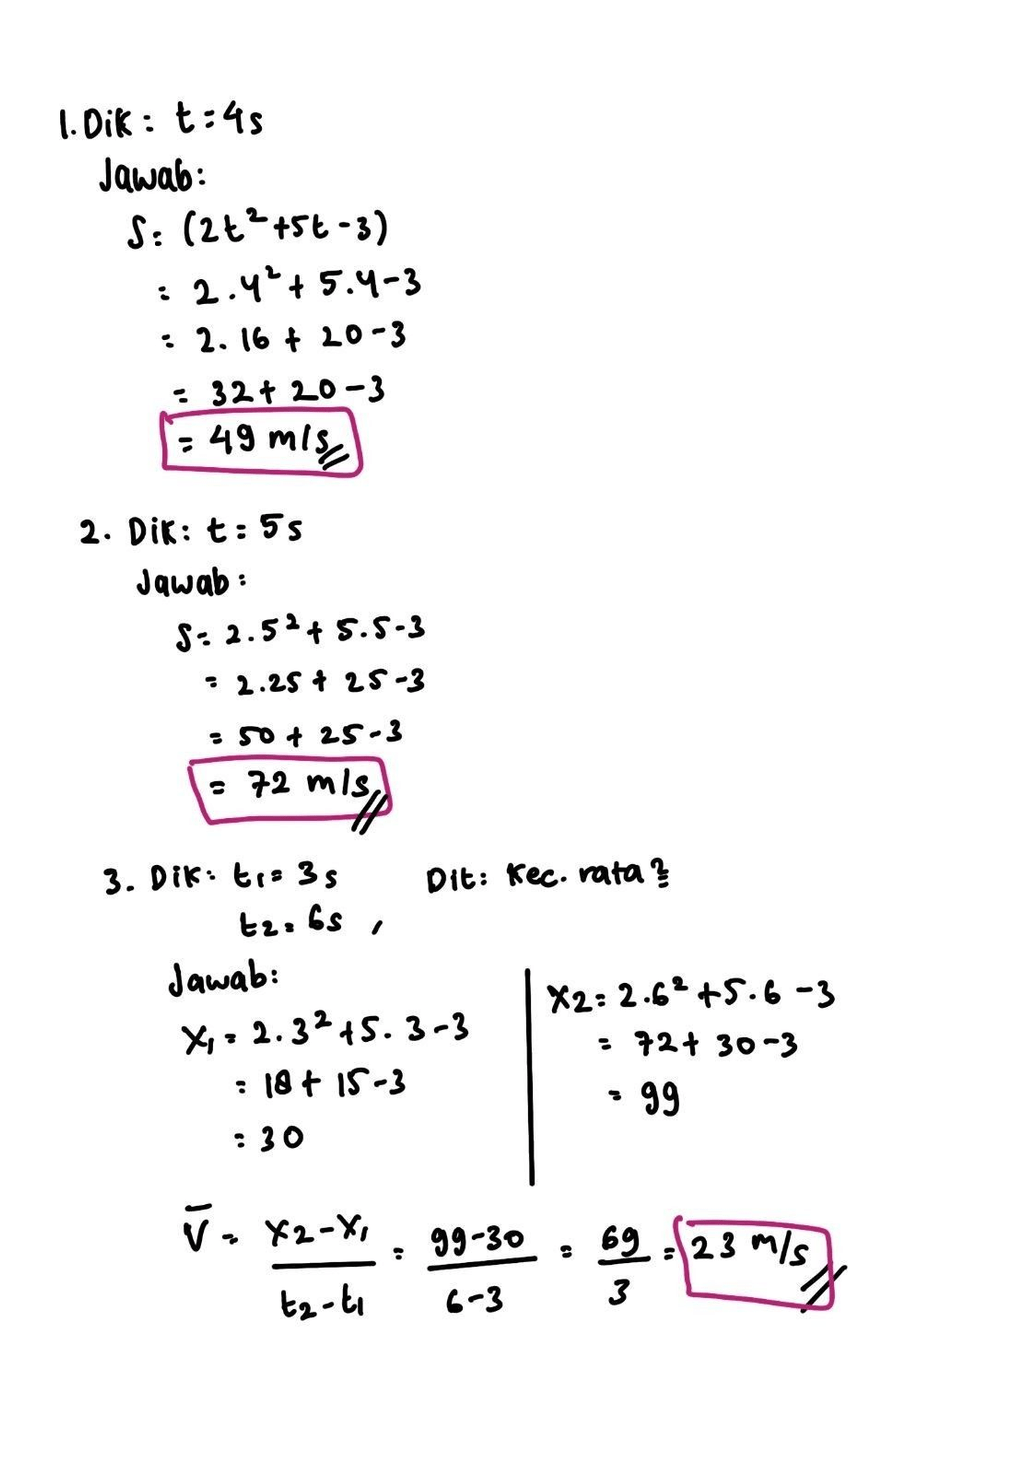 1. Dik : t = 4s
Jawab:
S = (2t² + 5t - 3)
= 2.4² + 5.4 - 3
= 2.16 + 20 - 3
= 32 + 20 - 3
= 49 m/s
2. Dik : t = 5s
Jawab :
S = 2.5² + 5.5 - 3
= 2.25 + 25 - 3
= 50 + 25 - 3
= 72 m/s
3. Dik : t₁ = 3s Dit : Kec. rata ?
t₂ = 6s ,
Jawab:
X₁ = 2.3² + 5. 3 - 3
= 18 + 15 - 3
= 30
X₂ = 2.6² + 5.6 - 3
= 72 + 30 - 3
= 99
V̄ = X₂ - X₁ / t₂ - t₁ = 99 - 30 / 6 - 3 = 69 / 3 = 23 m/s